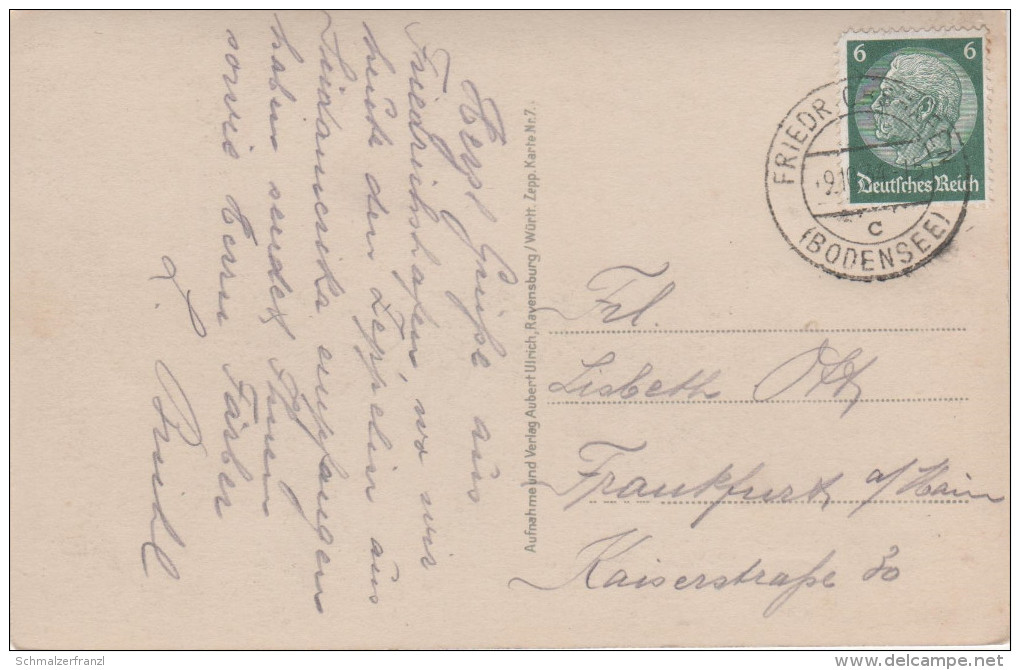 Herzl. Grüße aus
Friedrichshafen, wo wir
heute den Zeppelin aus
Südamerika empfangen
haben sendet Ihnen
sowie Herrn Färber
L.
Aufnahme und Verlag Aubert Ulrich, Ravensburg / Württ. Zepp. Karte Nr. 7.
6 6
Deutsches Reich
FRIEDR
c
(BODENSEE)
Frl.
Lisbeth Ott
Frankfurt a/Main
Kaiserstraße 30
Schmalzerfranzl
delcampe.net